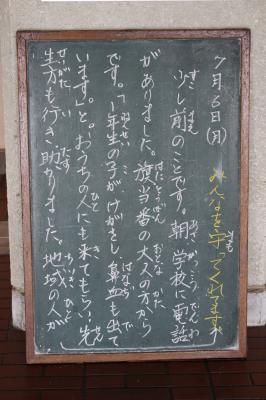 7月6日(月)
みんなを守ってくれてます
少し前のことです。朝、学校に電話
がありました。旗当番の大人の方から
です。「1年生の子がけがをし、鼻血も出て
います」と。おうちの人にも来てもらい、先
生方も行き助かりました。地域の人が